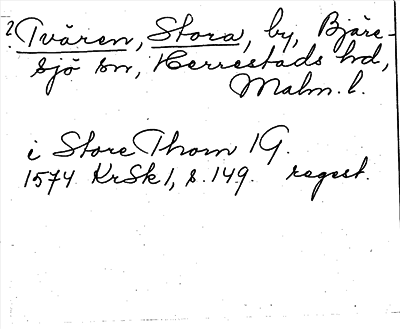 ? Tvären, Stora, by, Bjäre-
sjö sn, Herrestads hd,
Malm. l.
i Store Thorn 1 G.
1574 KrSk 1, s. 149. regest.